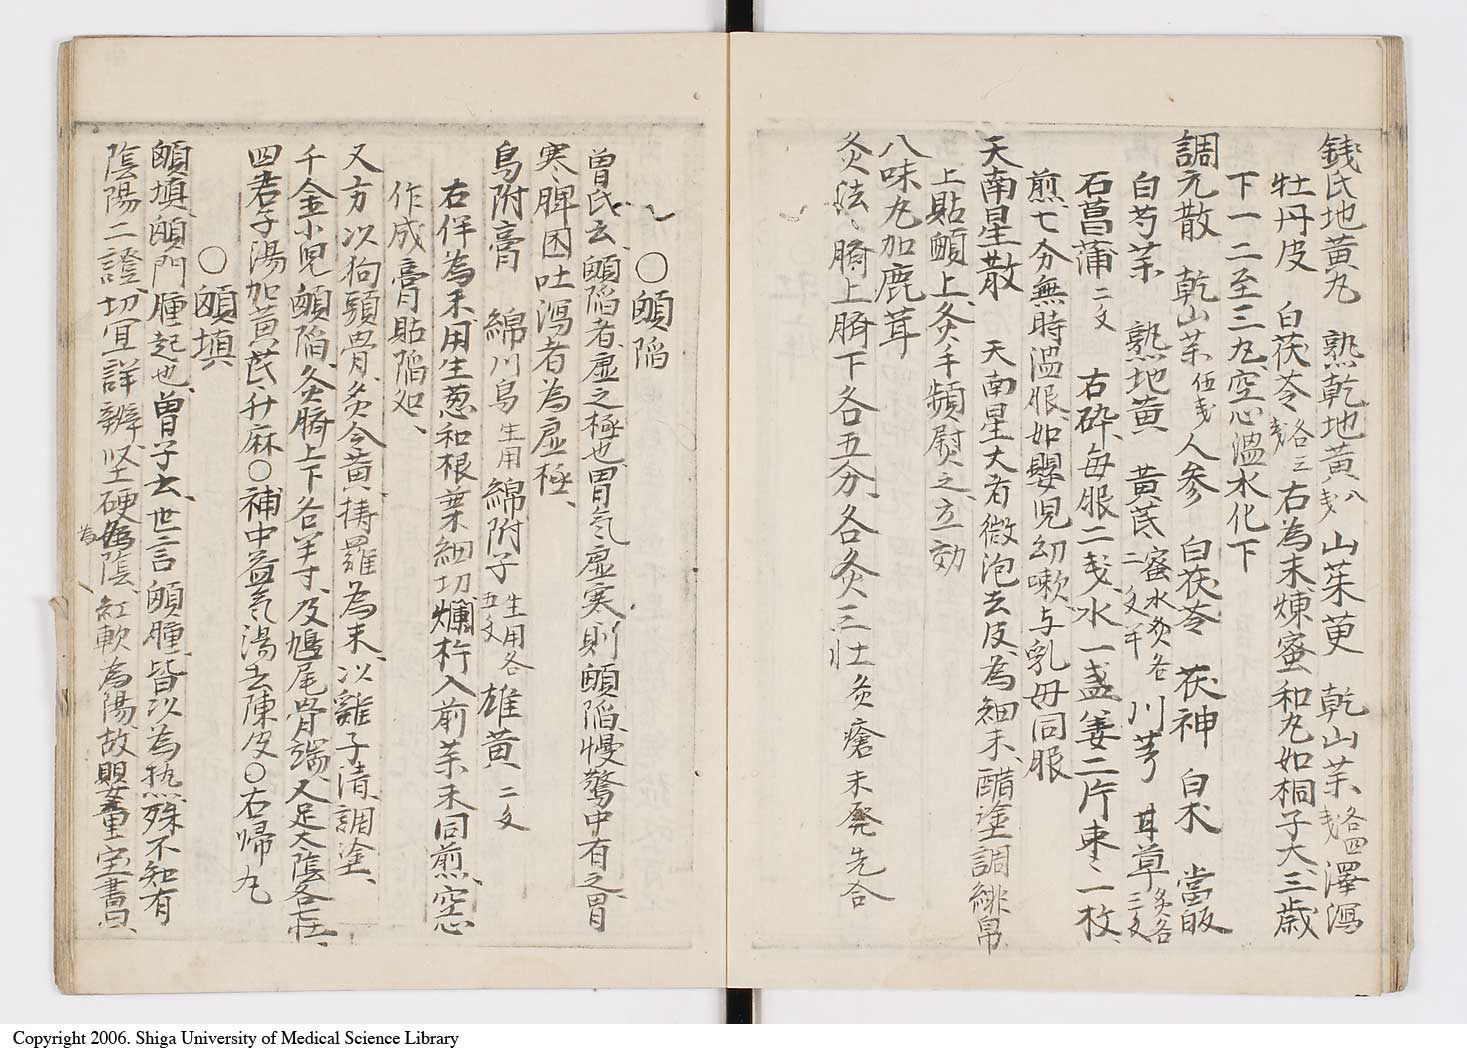 錢氏地黃丸　熟乾地黃八戔　山茱萸　乾山茱各四戔澤瀉
牡丹皮　白茯苓各三戔右為末煉蜜和丸如桐子大三歲
下一二至三丸空心溫水化下
調元散　乾山茱伍戔人參　白茯苓　茯神　白朮　當皈
白芍茱　熟地黃　黃芪蜜水炙各二文半川芎　甘草炙各三文
石菖蒲二文　右碎每服二戔水一盞姜二片棗一枚
煎七分無時溫服如嬰児幼嗽与乳母同服
天南星散　天南星大者微泡去皮為細末醋塗調緋帛
上貼顖上炙手頻熨之立効
八味丸加鹿茸
灸法臍上臍下各五分各灸三壯灸瘡未発先合
〇顖陥
曽氏云顖陥者虛之極也胃気虛寒則顖陥慢驚中有之胃
寒脾困吐瀉者為虛極
烏附膏　綿川烏生用綿附子生用各五文雄黃二文
右件為末用生葱和根葉細切爛杵入前茱末同煎空心
作成膏貼陥処
又方以狗頭骨炙令黃擣羅為末以雞子清調塗
千金小児顖陥灸臍上下各半寸及鳩尾骨端又足太陰各一壮
四君子湯加黃芪升麻〇補中益気湯去陳皮〇右帰丸
〇顖填
顖填顖門腫起也曽子云世言顖腫皆以為热殊不知有
陰陽二證切宜詳辨坚硬為陰紅軟為陽故嬰童宝書曰
為
Copyright 2006. Shiga University of Medical Science Library